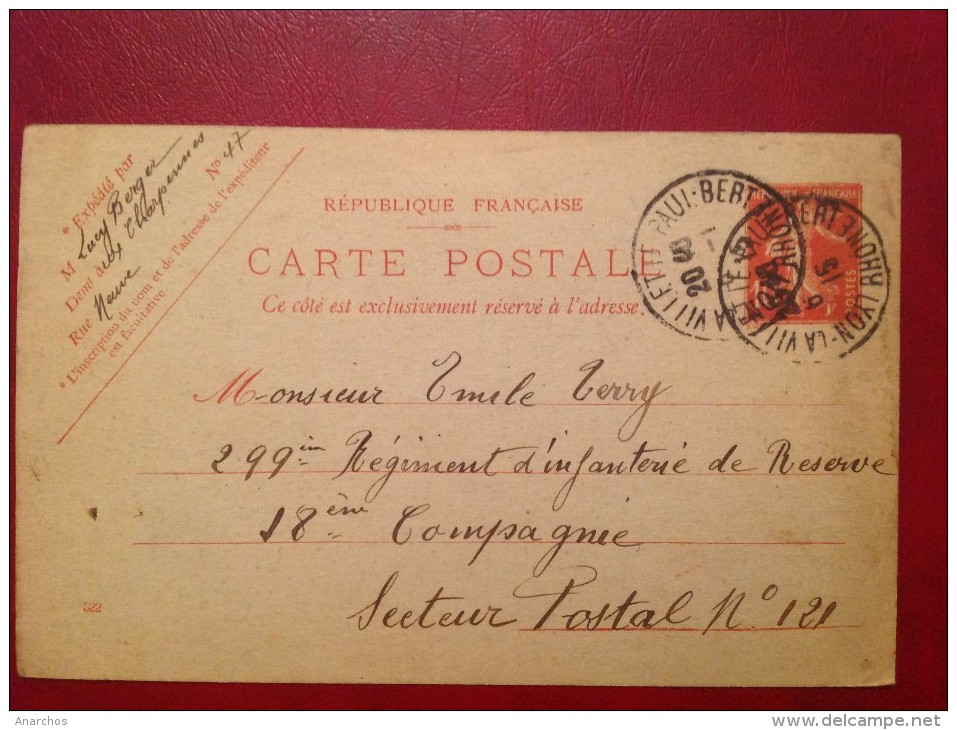 * Expédié par
M Lucy Berger
Demt à aux Charpennes
Rue Neuve Nº 47
* L'inscription du nom et de l'adresse de l'expéditeur
est facultative.
RÉPUBLIQUE FRANÇAISE
CARTE POSTALE
Ce côté est exclusivement réservé à l'adresse.
RÉPUBLIQUE FRANÇAISE
POSTES
PAUL-BERT
LYON-LA VILLETTE
RHÔNE
LYON-LA VILLE
20
Monsieur Emile Terry
299 ème Régiment d'infanterié de Reserve
18 ème Compagnie
Secteur Postal Nº 121
522
Anarchos
http://www.delcampe.net